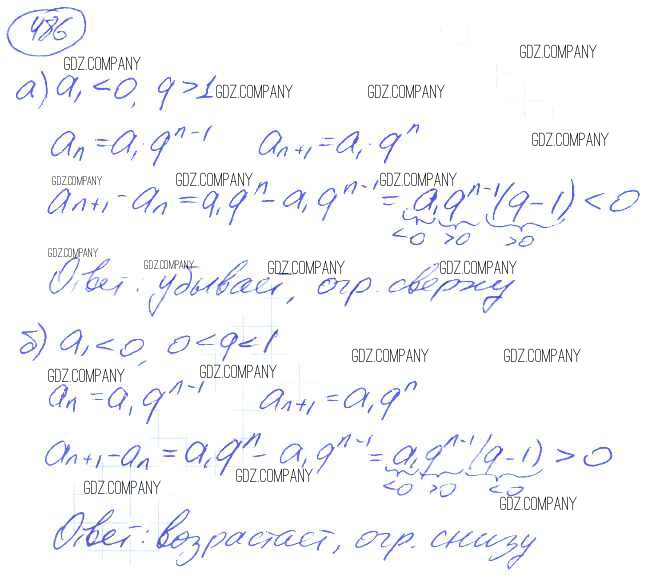 486
GDZ.COMPANY
GDZ.COMPANY
а) a₁ < 0, q > 1
GDZ.COMPANY
GDZ.COMPANY
aₙ = a₁ · qⁿ⁻¹ aₙ₊₁ = a₁ · qⁿ
GDZ.COMPANY
GDZ.COMPANY
GDZ.COMPANY
GDZ.COMPANY
aₙ₊₁ - aₙ = a₁qⁿ - a₁qⁿ⁻¹ = a₁qⁿ⁻¹(q-1) < 0
<0 >0 >0
GDZ.COMPANY
GDZ.COMPANY
GDZ.COMPANY
GDZ.COMPANY
Ответ: убывает, огр. сверху
б) a₁ < 0, 0 < q < 1
GDZ.COMPANY
GDZ.COMPANY
GDZ.COMPANY
GDZ.COMPANY
aₙ = a₁qⁿ⁻¹ aₙ₊₁ = a₁qⁿ
aₙ₊₁ - aₙ = a₁qⁿ - a₁qⁿ⁻¹ = a₁qⁿ⁻¹(q-1) > 0
GDZ.COMPANY
<0 >0 <0
GDZ.COMPANY
GDZ.COMPANY
Ответ: возрастает, огр. снизу